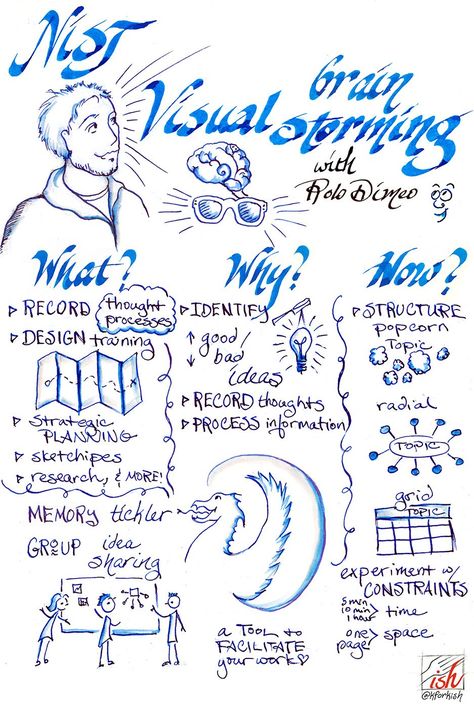 NIST
Visual brain
storming
with
Rolo Dimeo
What?
▹ RECORD thought
processes
▹ DESIGN training
▹ strategic
PLANNING
▹ sketchipes
▹ research, & MORE!
MEMORY tickler
GROUP idea
sharing
Why?
▹ IDENTIFY
↑ good/
↓ bad
ideas
▹ RECORD thoughts
▹ PROCESS information
a TOOL to
FACILITATE
your work♡
How?
▹ STRUCTURE
popcorn
Topic
radial
TOPIC
grid
TOPIC
experiment w/
CONSTRAINTS
5 min
10 min > time
1 hour
one
page > space
ish